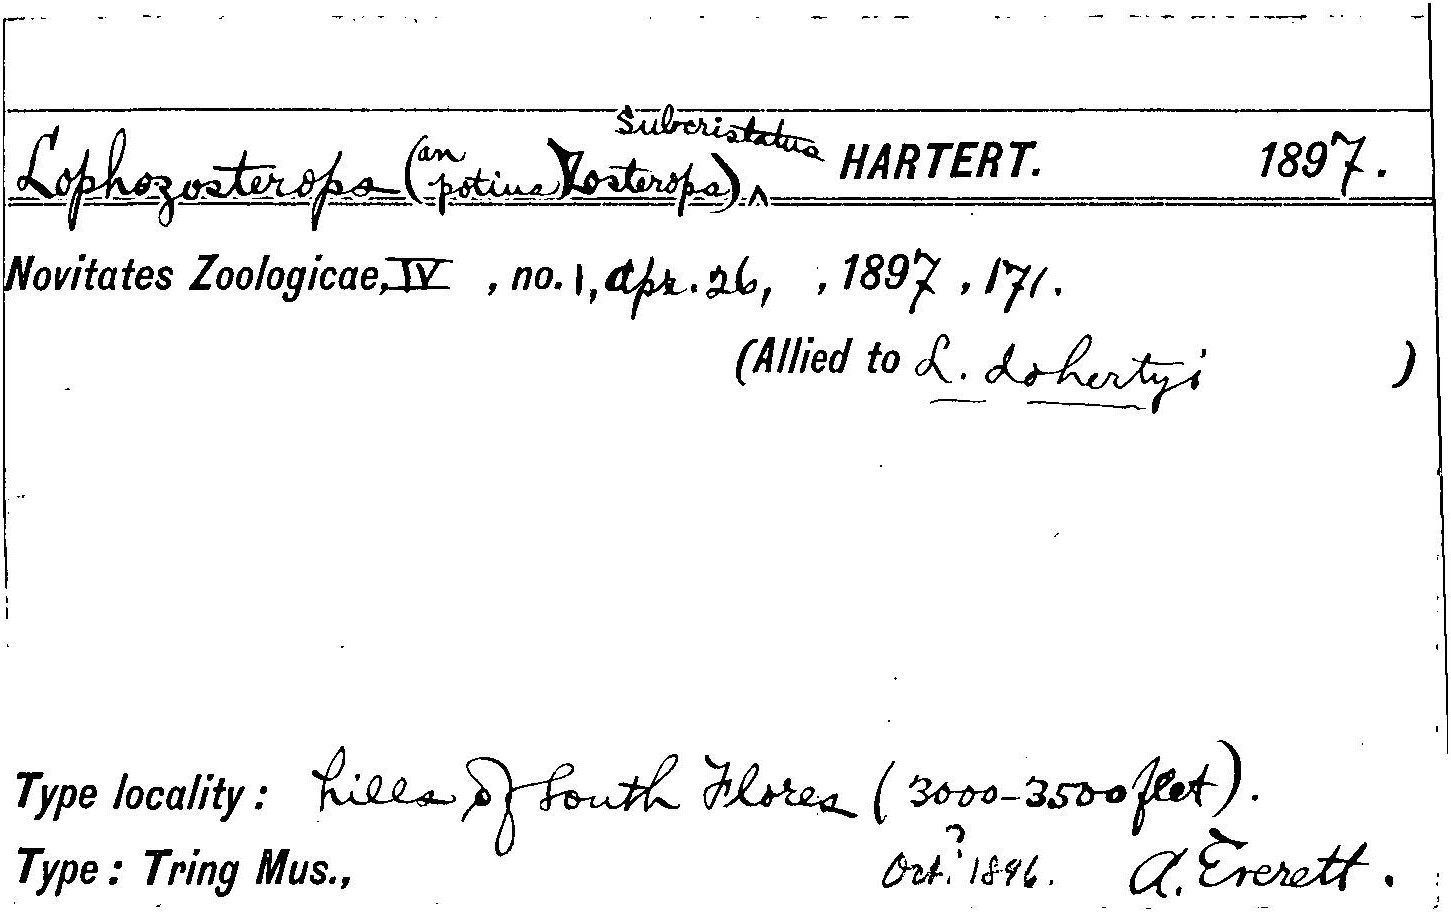 Lophozosterops (an potius Zosterops) ^ subcristatus HARTERT. 1897.
Novitates Zoologicae, IV , no. 1, Apr. 26, , 1897 , 171.
(Allied to L. dohertyi )
Type locality : hills of South Flores (3000-3500 feet).
Type : Tring Mus., Oct.? 1896. A. Everett.